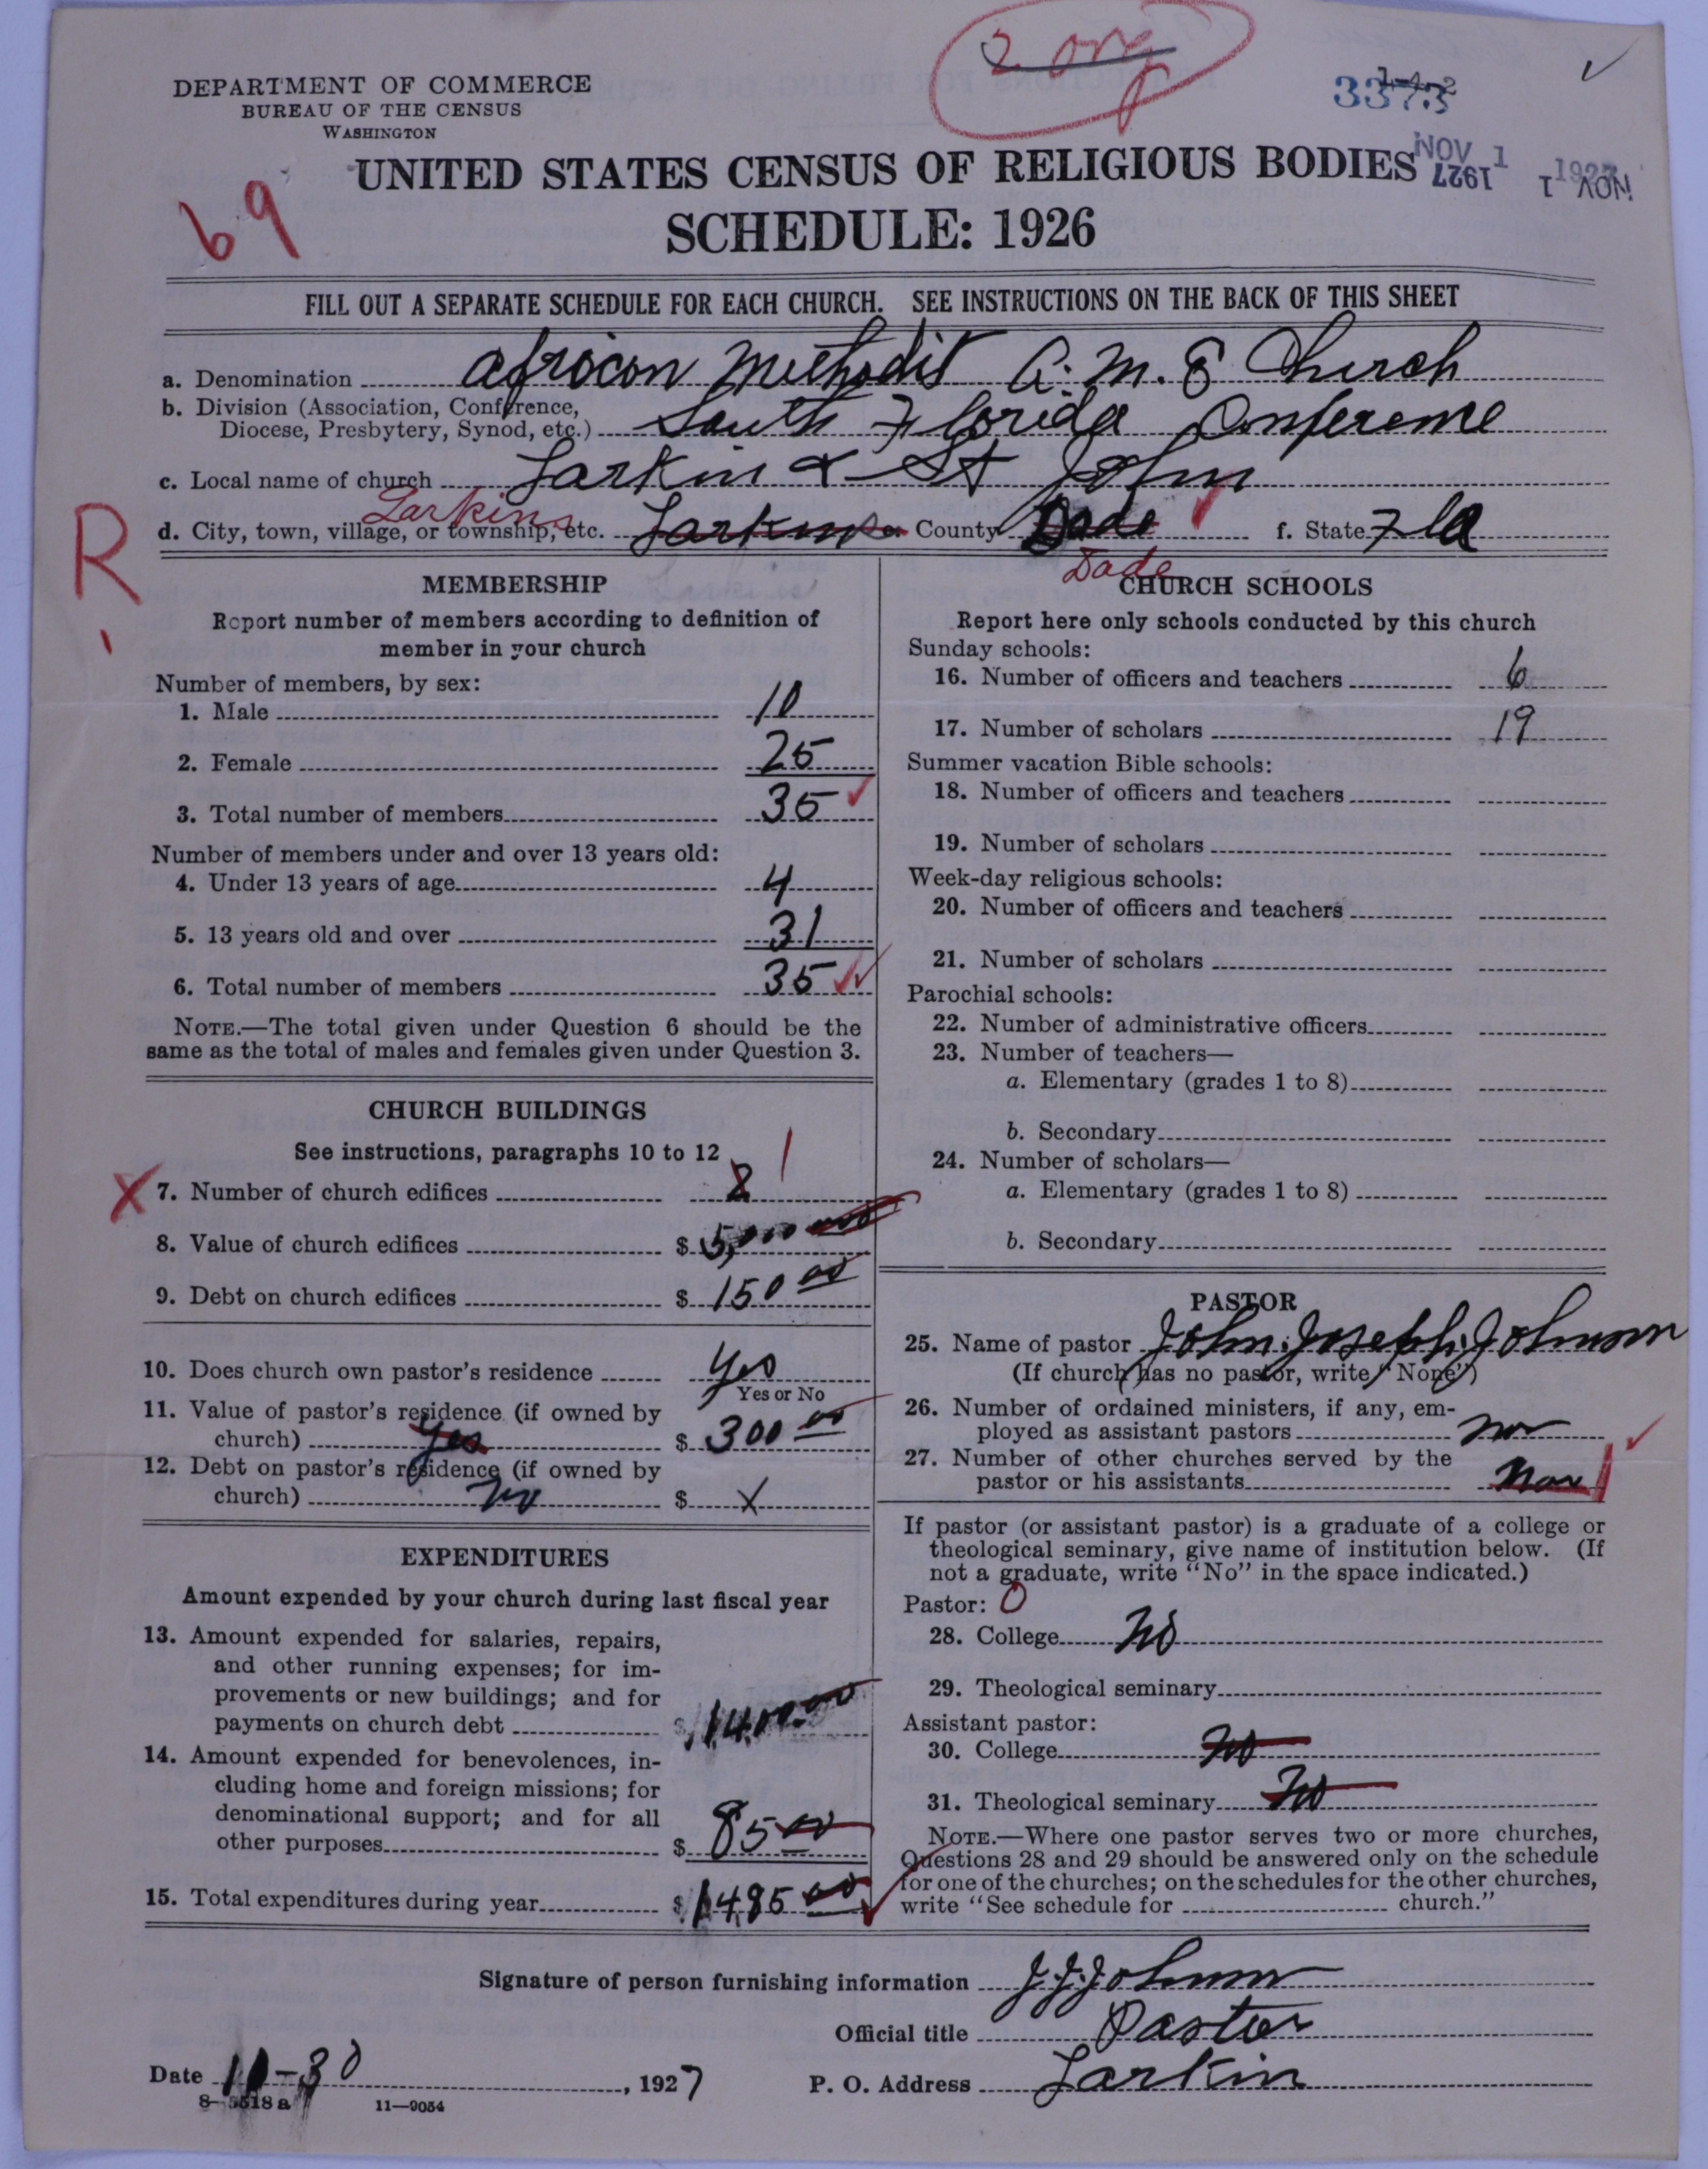 2 org
DEPARTMENT OF COMMERCE
BUREAU OF THE CENSUS
WASHINGTON
3373
NOV 1 1927
1927 NOV 1
UNITED STATES CENSUS OF RELIGIOUS BODIES
69
SCHEDULE: 1926
FILL OUT A SEPARATE SCHEDULE FOR EACH CHURCH. SEE INSTRUCTIONS ON THE BACK OF THIS SHEET
a. Denomination africon Methodist A. M. E Church
b. Division (Association, Conference,
Diocese, Presbytery, Synod, etc.) South Florida Conference
c. Local name of church Larkin & St John
Larkins
d. City, town, village, or township, etc. Larkins e. County Dade f. State Fla
R
Dade
MEMBERSHIP
Report number of members according to definition of
member in your church
Number of members, by sex:
1. Male 10
2. Female 25
3. Total number of members 35
Number of members under and over 13 years old:
4. Under 13 years of age 4
5. 13 years old and over 31
6. Total number of members 35
NOTE.—The total given under Question 6 should be the
same as the total of males and females given under Question 3.
CHURCH BUILDINGS
See instructions, paragraphs 10 to 12
X 7. Number of church edifices 2 1
8. Value of church edifices $ 5,000
9. Debt on church edifices $ 150 00
10. Does church own pastor's residence yes
Yes or No
11. Value of pastor's residence (if owned by
church) yes $ 300 00
12. Debt on pastor's residence (if owned by
church) no $ X
EXPENDITURES
Amount expended by your church during last fiscal year
13. Amount expended for salaries, repairs,
and other running expenses; for im-
provements or new buildings; and for
payments on church debt $ 1400.00
14. Amount expended for benevolences, in-
cluding home and foreign missions; for
denominational support; and for all
other purposes $ 85 00
15. Total expenditures during year $ 1485 00
CHURCH SCHOOLS
Report here only schools conducted by this church
Sunday schools:
16. Number of officers and teachers 6
17. Number of scholars 19
Summer vacation Bible schools:
18. Number of officers and teachers
19. Number of scholars
Week-day religious schools:
20. Number of officers and teachers
21. Number of scholars
Parochial schools:
22. Number of administrative officers
23. Number of teachers—
a. Elementary (grades 1 to 8)
b. Secondary
24. Number of scholars—
a. Elementary (grades 1 to 8)
b. Secondary
PASTOR
25. Name of pastor John. Joseph. Johnson
(If church has no pastor, write "None")
26. Number of ordained ministers, if any, em-
ployed as assistant pastors non
27. Number of other churches served by the
pastor or his assistants Non 1
If pastor (or assistant pastor) is a graduate of a college or
theological seminary, give name of institution below. (If
not a graduate, write "No" in the space indicated.)
Pastor: 0
28. College no
29. Theological seminary
Assistant pastor:
30. College no
31. Theological seminary no
NOTE.—Where one pastor serves two or more churches,
Questions 28 and 29 should be answered only on the schedule
for one of the churches; on the schedules for the other churches,
write "See schedule for church."
Signature of person furnishing information J. J. Johnson
Official title Pastor
Date 10-30, 1927 P. O. Address Larkin
8-5518 a 11—9054